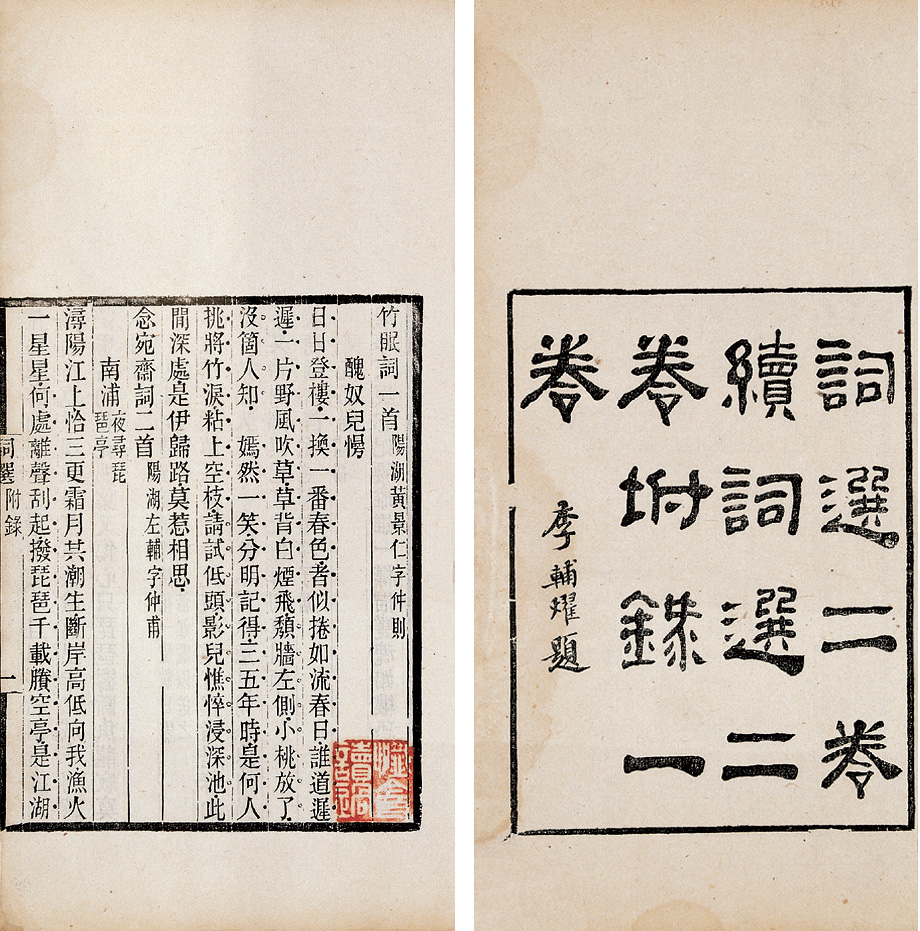 詞選二卷
續詞選二
卷坿錄一
卷
李輔燿題
竹眠詞一首 陽湖黃景仁字仲則
醜奴兒慢
日日登樓一換一番春色者似捲如流春日誰道遲
遲一片野風吹草草背白煙飛頹牆左側小桃放了
沒箇人知 嫣然一笑分明記得三五年時是何人
挑將竹淚粘上空枝請試低頭影兒憔悴浸深池此
間深處是伊歸路莫惹相思
念宛齋詞二首 陽湖左輔字仲甫
南浦 夜尋琵
琶亭
潯陽江上恰三更霜月共潮生斷岸高低向我漁火
一星星何處離聲刮起撥琵琶千載賸空亭是江湖
詞選附錄 一